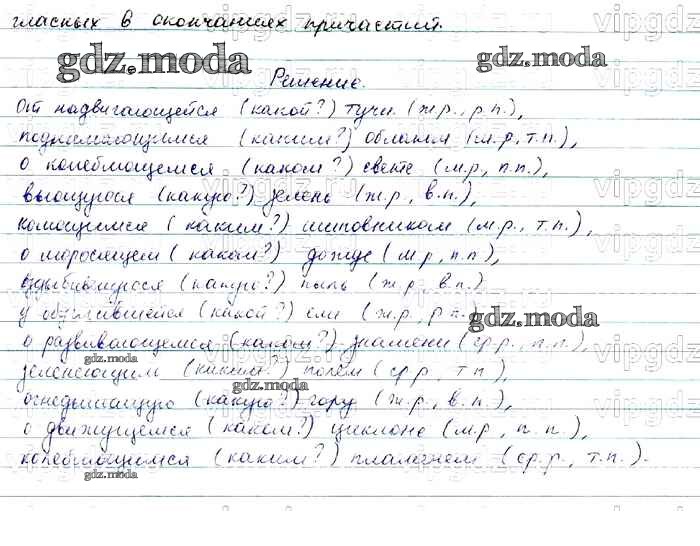 гласных в окончаниях причастий.
gdz.moda gdz.moda
Решение.
От надвигающейся (какой?) тучи (ж.р., р.п.),
поднимающимся (каким?) облаком (м.р., т.п.),
о колеблющемся (каком?) свете (м.р., п.п.),
вьющуюся (какую?) зелень (ж.р., в.п.),
колющимся (каким?) шиповником (м.р., т.п.),
о моросящем (каком?) дожде (м.р., п.п.),
(какую?) пыль (ж.р., в.п.)
у (какой?) ели (ж.р., р.п.)
gdz.moda
о развивающемся (каком?) знамени (ср.р., п.п.),
gdz.moda
зеленеющим (каким?) полем (ср.р., т.п.),
gdz.moda
огнедышащую (какую?) гору (ж.р., в.п.),
о движущемся (каком?) циклоне (м.р., п.п.),
gdz.moda
колеблющимся (каким?) пламенем (ср.р., т.п.).
gdz.moda